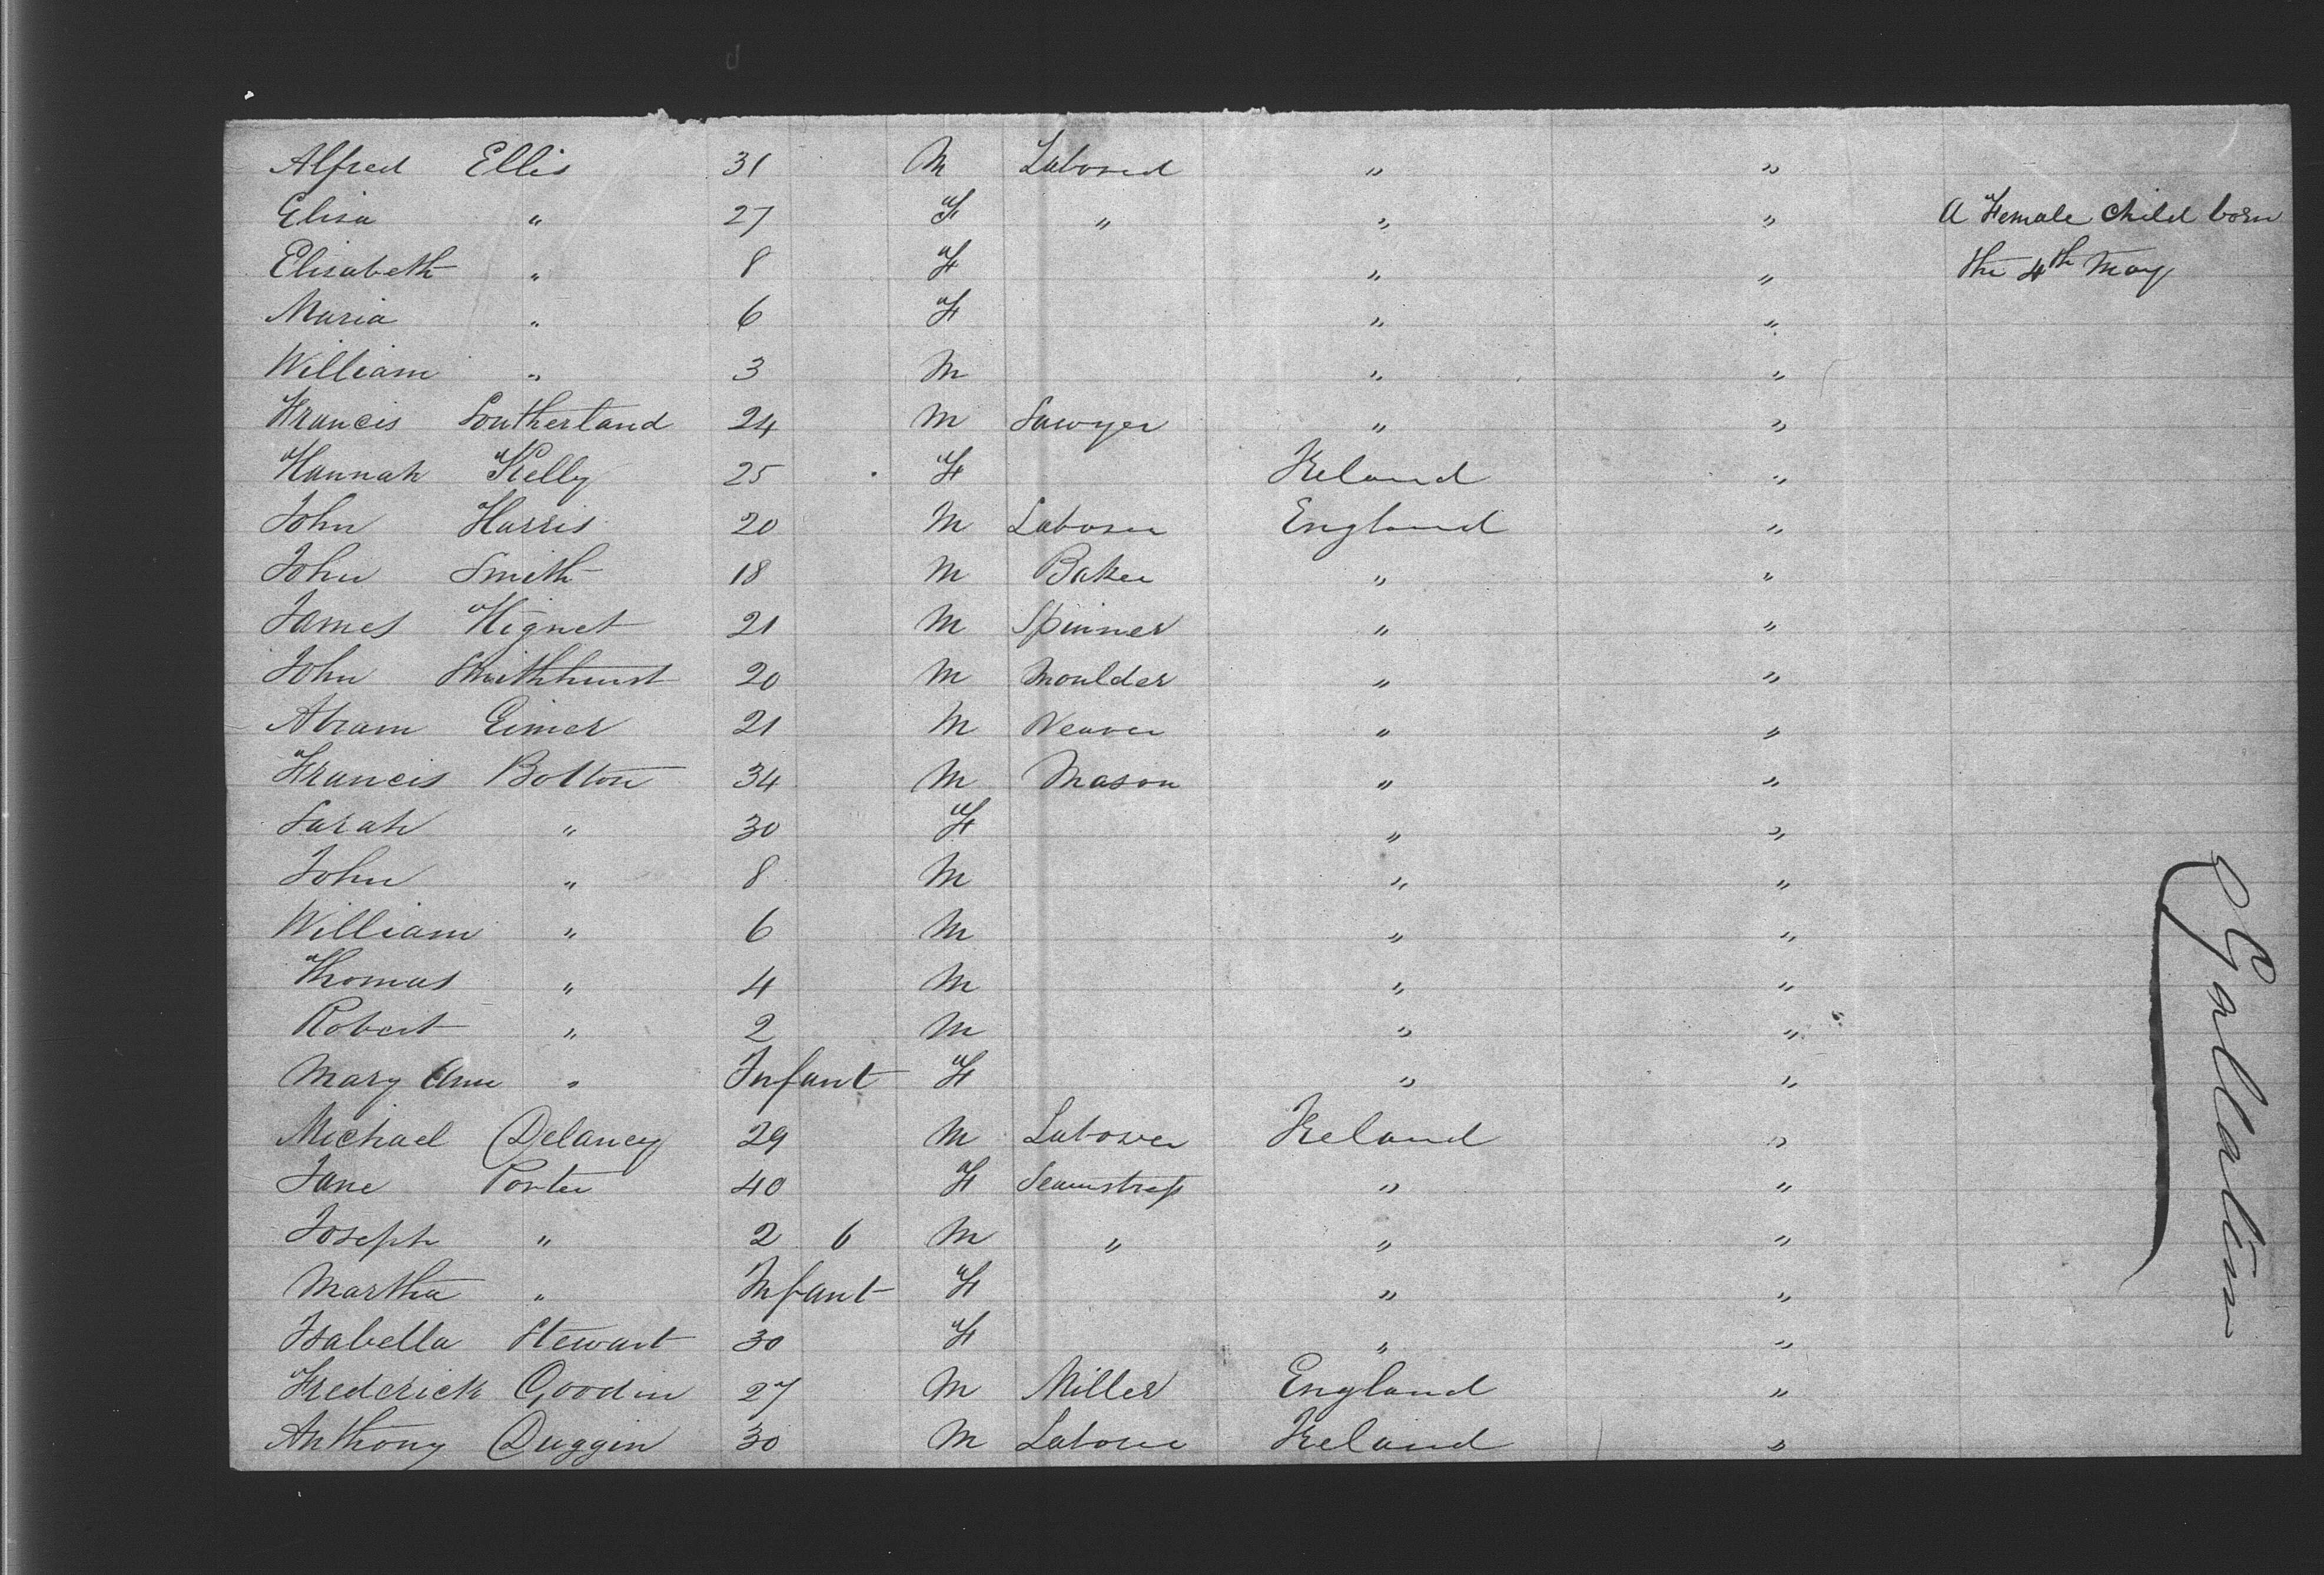 Alfred Ellis 31 M Laborer " "
Elisa " 27 F " " " A Female child born
Elisabeth " 8 F " " the 4th May
Maria " 6 F " "
William " 3 M " "
Francis Southerland 24 M Sawyer " "
Hannah Kelly 25 F Ireland "
John Harris 20 M Laborer England "
John Smith 18 M Baker " "
James Hignet 21 M Spinner " "
John Smithhurst 20 M Moulder " "
Abram Eimer 21 M Weaver " "
Francis Bolton 34 M Mason " "
Sarah " 30 F " "
John " 8 M " "
William " 6 M " "
Thomas " 4 M " "
Robert " 2 M " "
Mary Ann " Infant F " "
Michael Delaney 29 M Laborer Ireland "
Jane Porter 40 F Seamstress " "
Joseph " 2 6 M " " "
Martha " Infant F " "
Isabella Stewart 30 F " "
Frederick Goodin 27 M Miller England "
Anthony Duggin 30 M Laborer Ireland "